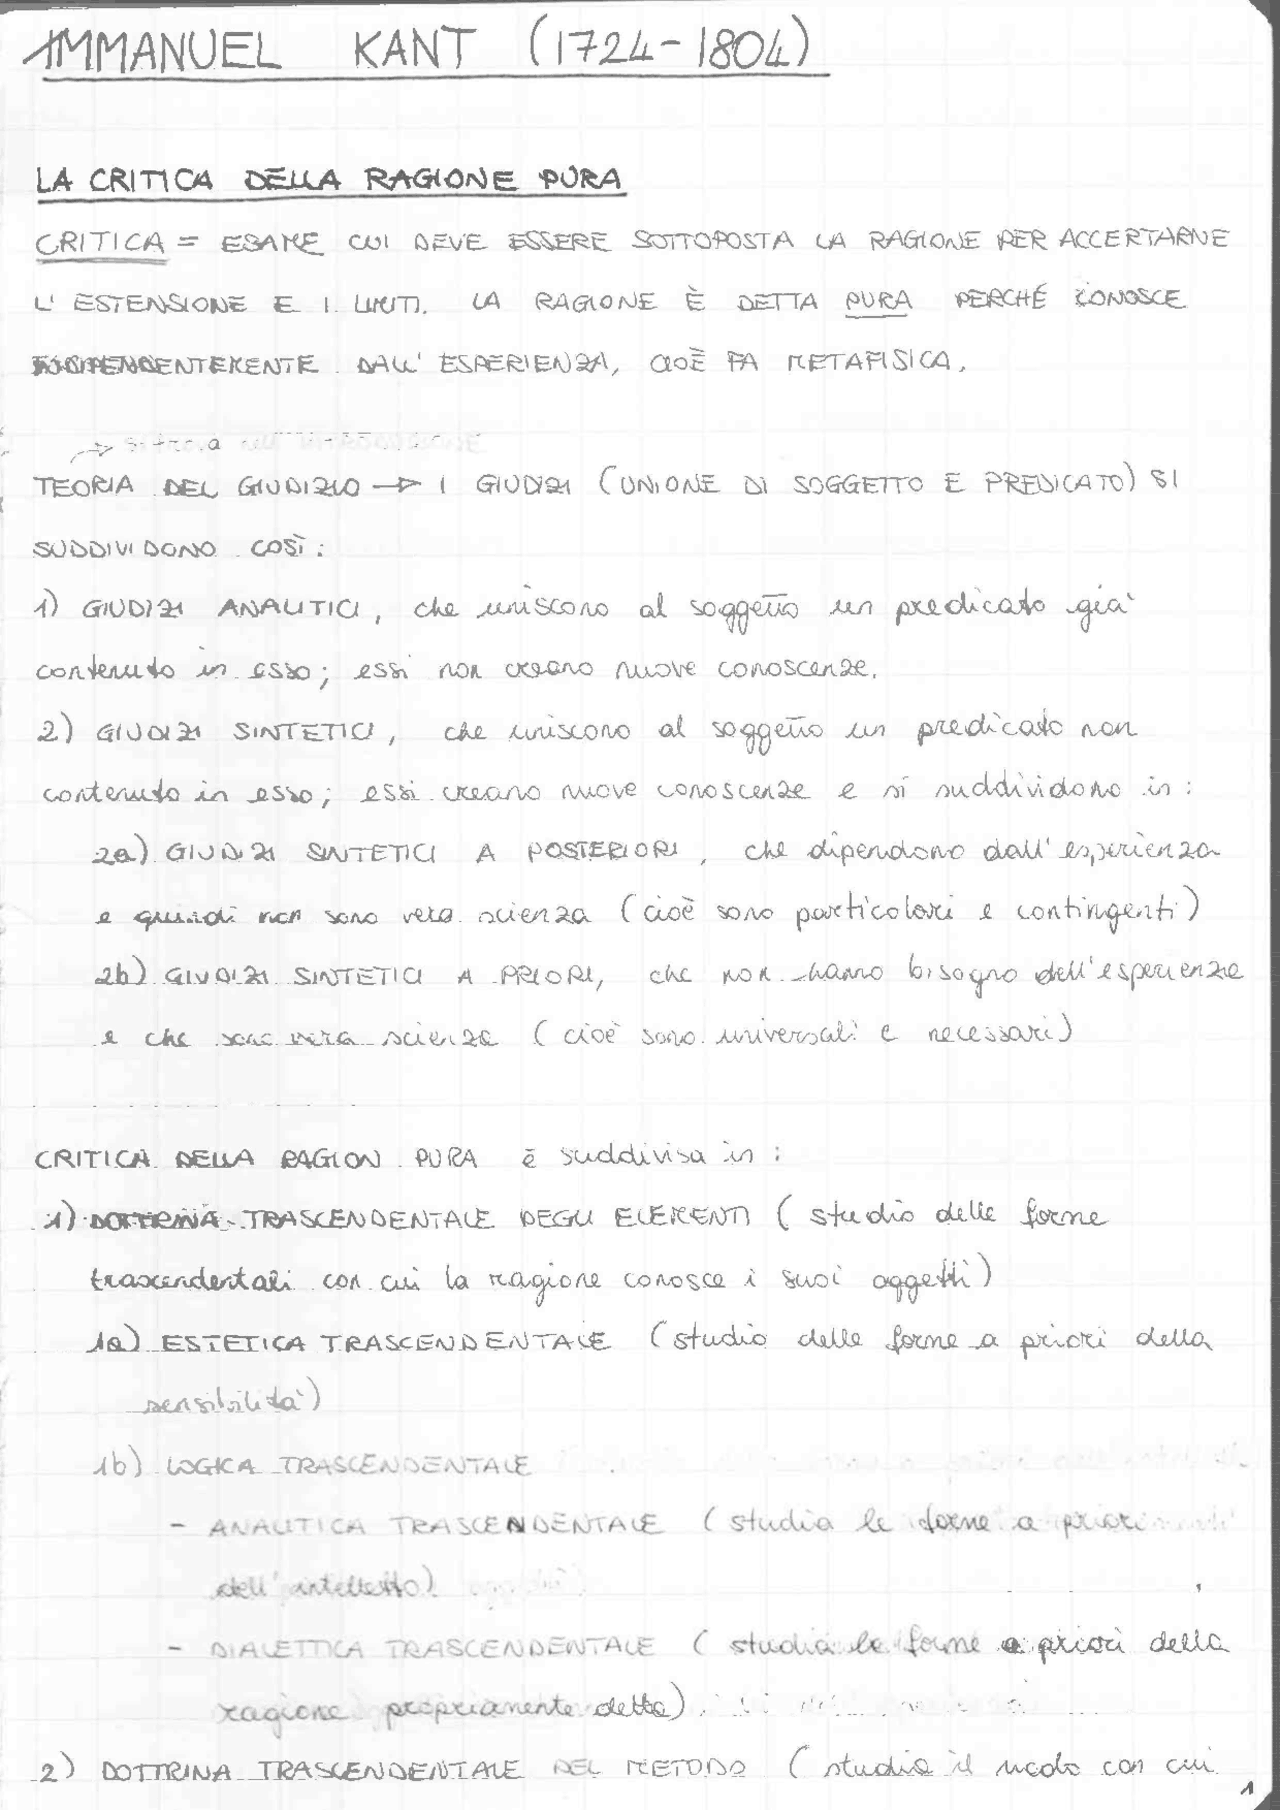 IMMANUEL KANT (1724-1804)
LA CRITICA DELLA RAGIONE PURA
CRITICA = ESAME CUI DEVE ESSERE SOTTOPOSTA LA RAGIONE PER ACCERTARNE
L'ESTENSIONE E I LIMITI. LA RAGIONE È DETTA PURA PERCHÉ CONOSCE
INDIPENDENTEMENTE DALL'ESPERIENZA, CIOÈ FA METAFISICA.
→ si trova nell'INTRODUZIONE
TEORIA DEL GIUDIZIO → I GIUDIZI (UNIONE DI SOGGETTO E PREDICATO) SI
SUDDIVIDONO COSÌ:
1) GIUDIZI ANALITICI, che uniscono al soggetto un predicato già
contenuto in esso; essi non creano nuove conoscenze.
2) GIUDIZI SINTETICI, che uniscono al soggetto un predicato non
contenuto in esso; essi creano nuove conoscenze e si suddividono in:
2a) GIUDIZI SINTETICI A POSTERIORI, che dipendono dall'esperienza
e quindi non sono vera scienza (cioè sono particolari e contingenti)
2b) GIUDIZI SINTETICI A PRIORI, che non hanno bisogno dell'esperienza
e che sono vera scienza (cioè sono universali e necessari)
CRITICA DELLA RAGION PURA è suddivisa in:
1) DOTTRINA TRASCENDENTALE DEGLI ELEMENTI (studio delle forme
trascendentali con cui la ragione conosce i suoi oggetti)
1a) ESTETICA TRASCENDENTALE (studio delle forme a priori della
sensibilità)
1b) LOGICA TRASCENDENTALE
- ANALITICA TRASCENDENTALE (studia le forme a priori
dell'intelletto)
- DIALETTICA TRASCENDENTALE (studia le forme a priori della
ragione propriamente detta)
2) DOTTRINA TRASCENDENTALE DEL METODO (studia il modo con cui
1